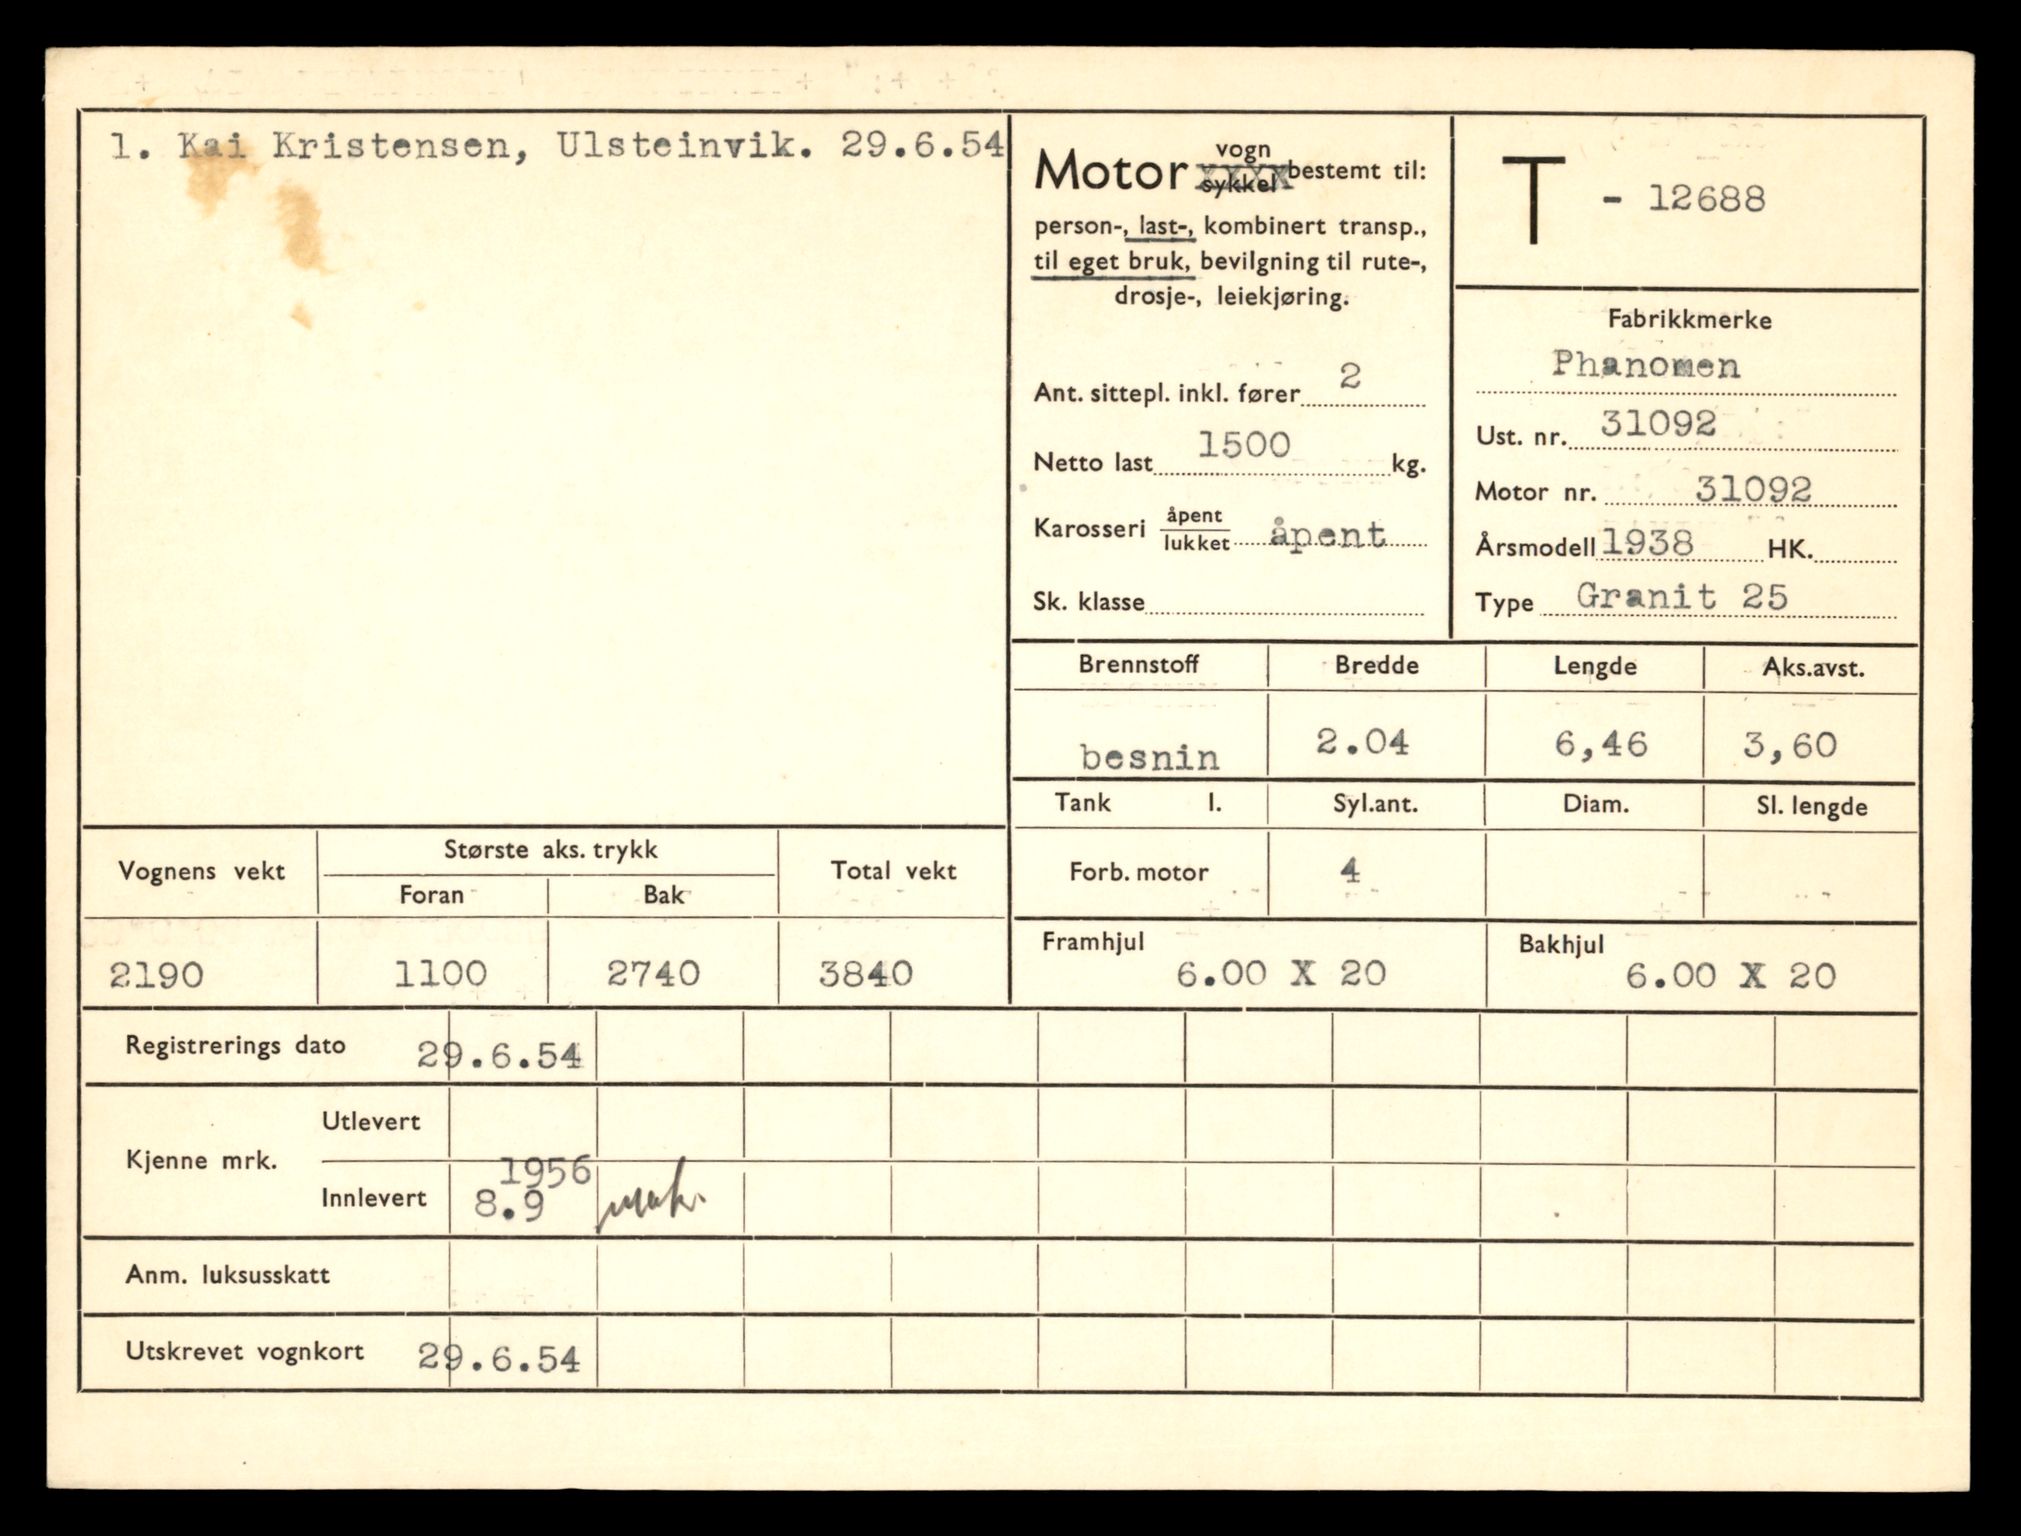 1. Kai Kristensen, Ulsteinvik. 29.6.54
Motor vogn sykkel bestemt til:
person-, last-, kombinert transp.,
til eget bruk, bevilgning til rute-,
drosje-, leiekjøring.
Ant. sittepl. inkl. fører 2
Netto last 1500 kg.
Karosseri åpent lukket åpent
Sk. klasse
T - 12688
Fabrikkmerke
Phanomen
Ust. nr. 31092
Motor nr. 31092
Årsmodell 1938 HK.
Type Granit 25
Brennstoff Bredde Lengde Aks.avst.
besnin 2.04 6,46 3,60
Tank l. Syl.ant. Diam. Sl. lengde
Forb. motor 4
Framhjul 6.00 X 20 Bakhjul 6.00 X 20
Vognens vekt Største aks. trykk Total vekt
Foran Bak
2190 1100 2740 3840
Registrerings dato 29.6.54
Kjenne mrk. Utlevert
Innlevert 1956
8.9
Anm. luksusskatt
Utskrevet vognkort 29.6.54